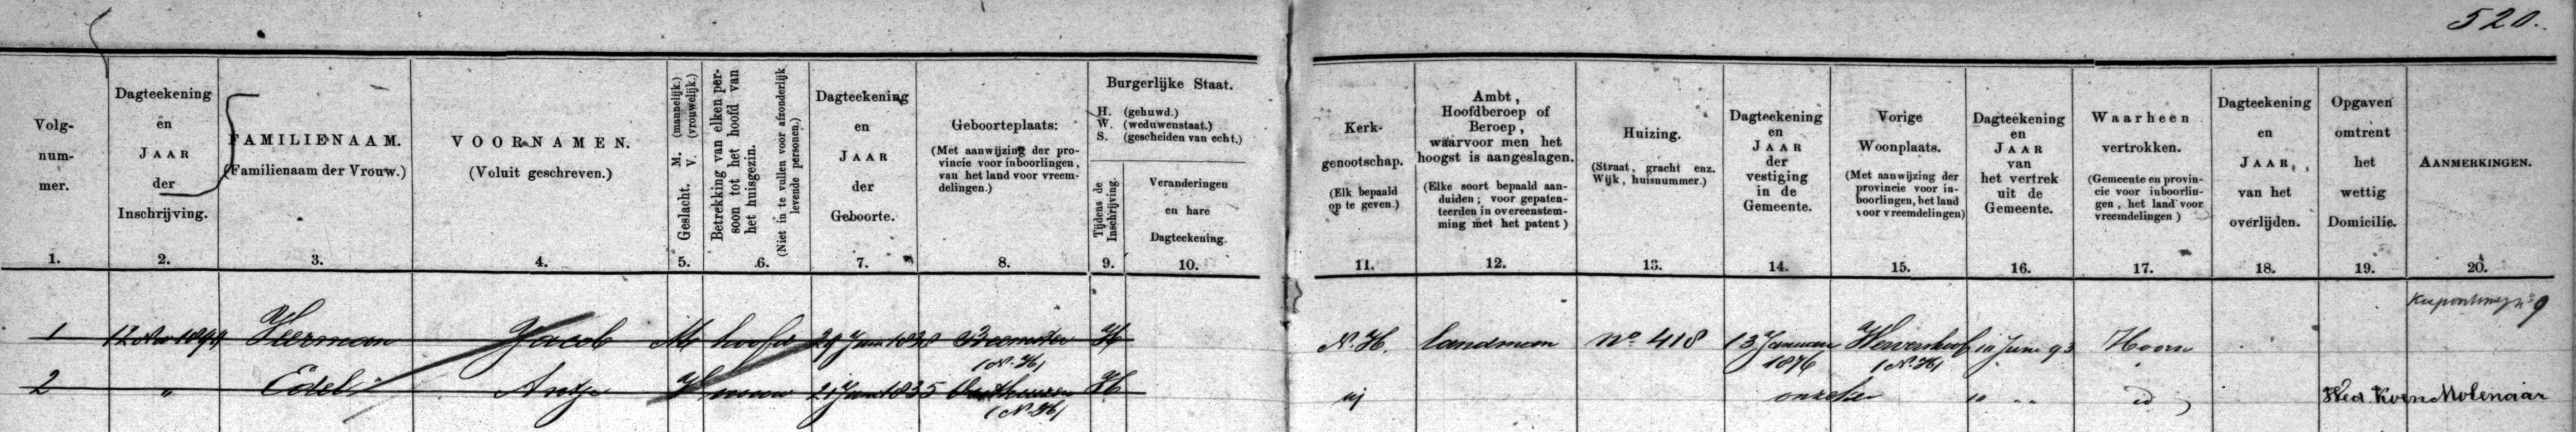 520.
Volg-
num-
mer.
1.
Dagteekening
en
JAAR
der
Inschrijving.
2.
FAMILIENAAM.
(Familienaam der Vrouw.)
3.
VOORNAMEN.
(Voluit geschreven.)
4.
Geslacht. M. (mannelijk.)
V. (vrouwelijk.)
5.
Betrekking van elken per-
soon tot het hoofd van
het huisgezin.
(Niet in te vullen voor afzonderlijk
levende personen.)
6.
Dagteekening
en
JAAR
der
Geboorte.
7.
Geboorteplaats:
(Met aanwijzing der pro-
vincie voor inboorlingen,
van het land voor vreem-
delingen.)
8.
Burgerlijke Staat.
H. (gehuwd.)
W. (weduwenstaat.)
S. (gescheiden van echt.)
Tijdens de
Inschrijving.
9.
Veranderingen
en hare
Dagteekening.
10.
Kerk-
genootschap.
(Elk bepaald
op te geven.)
11.
Ambt,
Hoofdberoep of
Beroep,
waarvoor men het
hoogst is aangeslagen.
(Elke soort bepaald aan-
duiden; voor gepaten-
teerden in overeenstem-
ming met het patent)
12.
Huizing.
(Straat, gracht enz.
Wijk, huisnummer.)
13.
Dagteekening
en
JAAR
der
vestiging
in de
Gemeente.
14.
Vorige
Woonplaats.
(Met aanwijzing der
provincie voor in-
boorlingen, het land
voor vreemdelingen)
15.
Dagteekening
en
JAAR
van
het vertrek
uit de
Gemeente.
16.
Waarheen
vertrokken.
(Gemeente en provin-
cie voor inboorlin-
gen, het land voor
vreemdelingen)
17.
Dagteekening
en
JAAR
van het
overlijden.
18.
Opgaven
omtrent
het
wettig
Domicilie.
19.
AANMERKINGEN.
20.
No 9
1 12 Veerman Jacob M hoofd 1838 Beemster H N.H. landman No. 418 13 Januari Wervershoof 10 Juni 93 Hoorn
(N.H) 1876 (N.H)
2 " Edel Antje V vrouw 21 1835 Oosthuizen H " " id Wed. Koen Molenaar
(N.H)